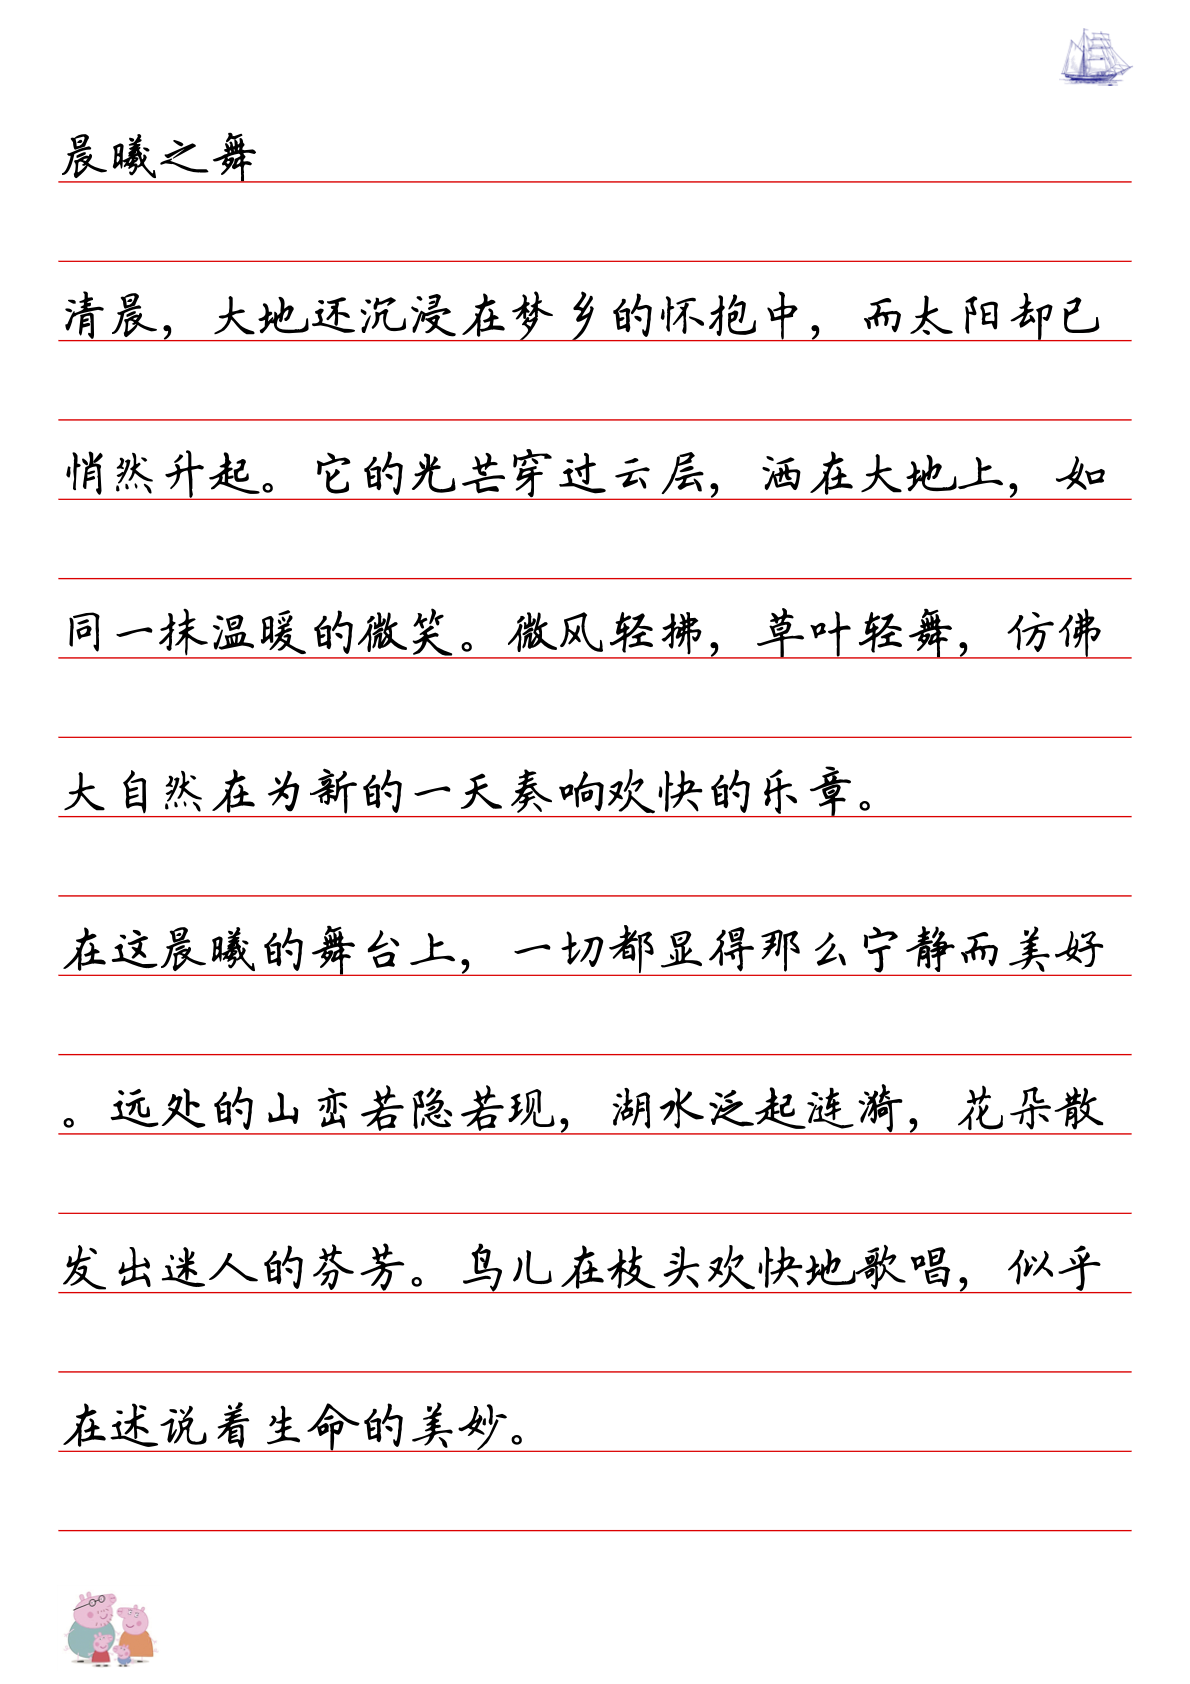 晨曦之舞
清晨，大地还沉浸在梦乡的怀抱中，而太阳却已
悄然升起。它的光芒穿过云层，洒在大地上，如
同一抹温暖的微笑。微风轻拂，草叶轻舞，仿佛
大自然在为新的一天奏响欢快的乐章。
在这晨曦的舞台上，一切都显得那么宁静而美好
。远处的山峦若隐若现，湖水泛起涟漪，花朵散
发出迷人的芬芳。鸟儿在枝头欢快地歌唱，似乎
在述说着生命的美妙。